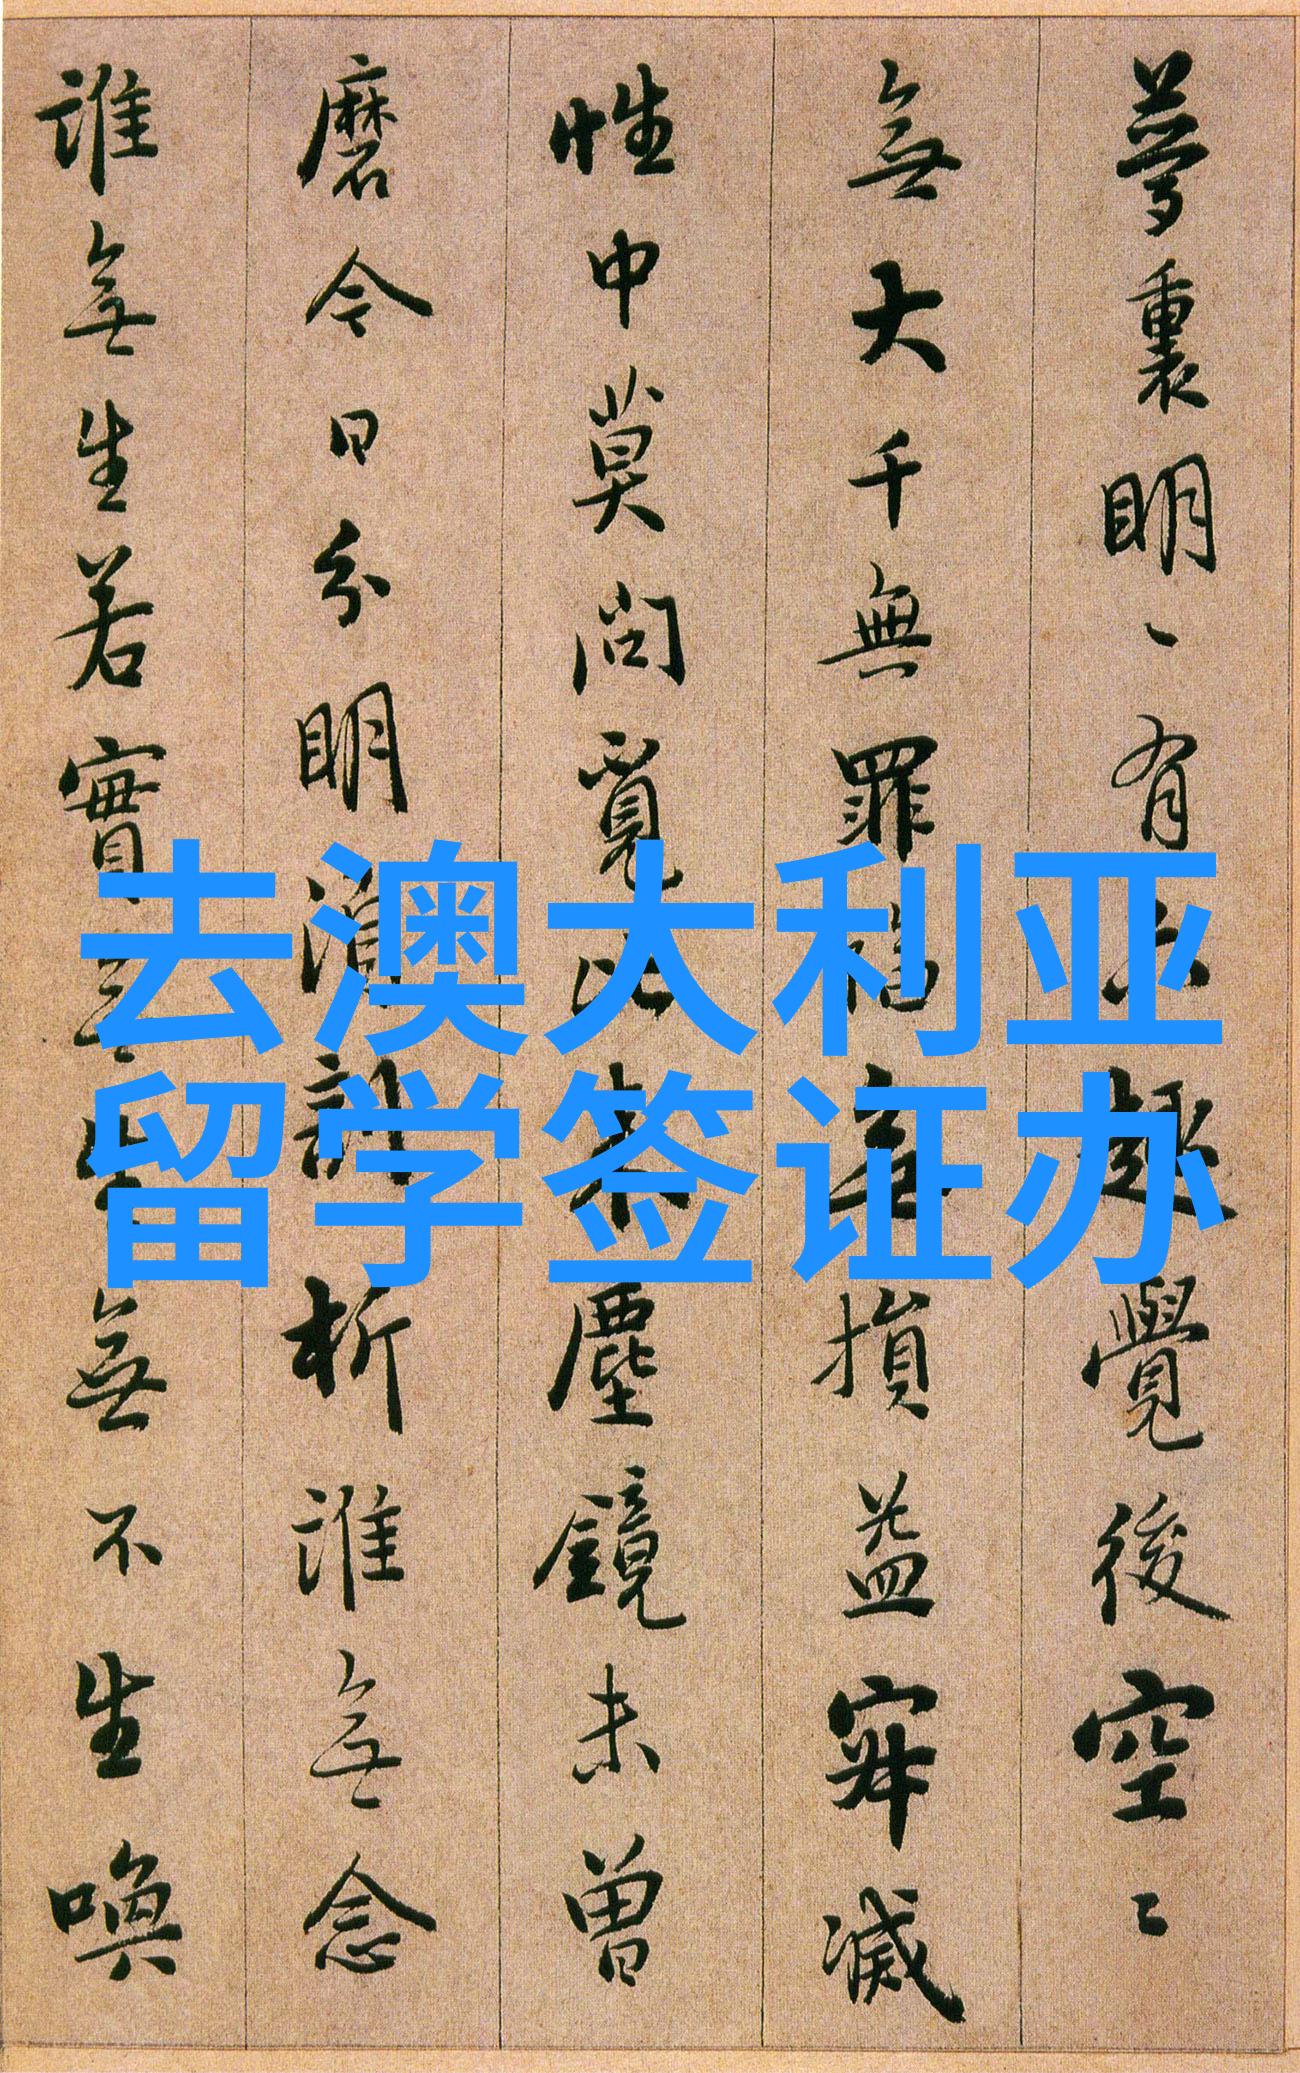 去澳大利亚
留学签证办
夢裏明〻有六趣覺後空〻
無大千無罪福無損益寂滅
性中莫問覓比来塵鏡未曾
磨今日分明須剖析誰無念
誰無生若實無生無不生喚